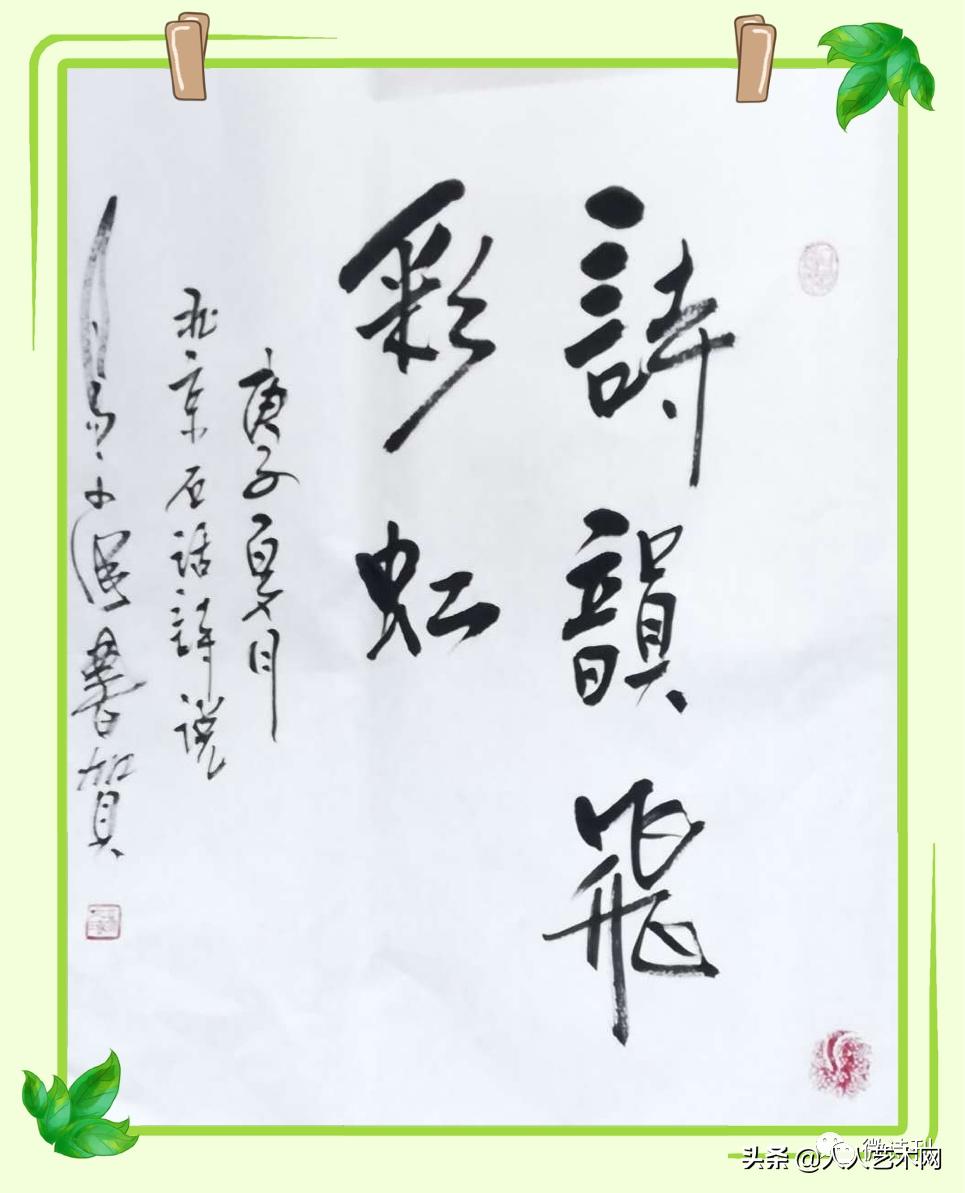 詩韻飛
彩虹
庚子夏月
北京石話詩說
書賀
微诗刊
头条 @人人艺术网